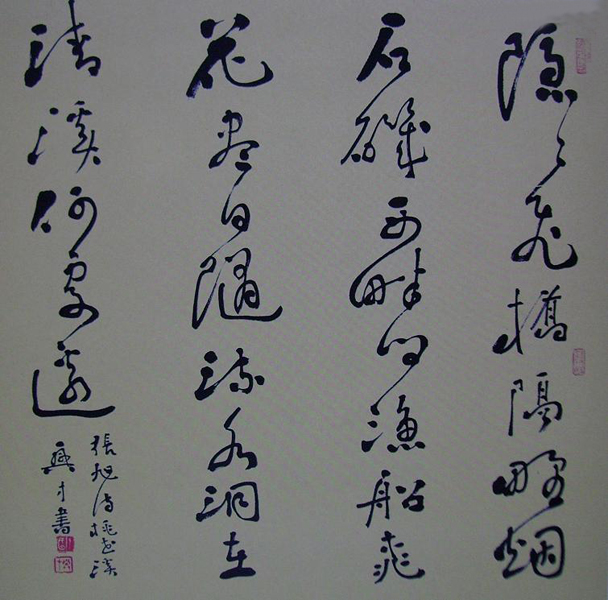 隱〻飛橋隔野烟
石磯西畔问漁船桃
花盡日隨流水洞在
清溪何處邊
張旭詩桃花溪
興才書